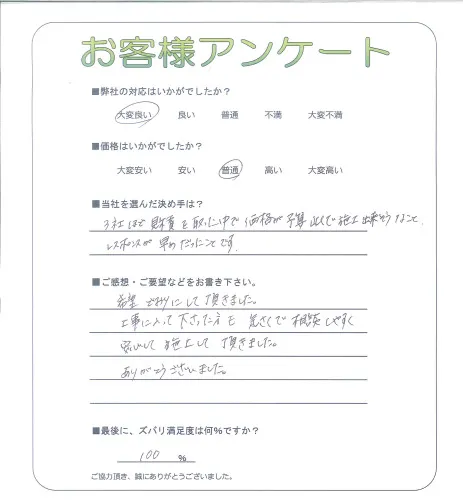 お客様アンケート
■弊社の対応はいかがでしたか？
大変良い 良い 普通 不満 大変不満
■価格はいかがでしたか？
大変安い 安い 普通 高い 大変高い
■当社を選んだ決め手は？
3社ほど見積を取った中で価格が予算以内で施工出来そうなこと。
レスポンスが早めだったことです。
■ご感想・ご要望などをお書き下さい。
希望どおりにして頂きました。
工事に入って下さった方も気さくで相談しやすく
安心して施工して頂きました。
ありがとうございました。
■最後に、ズバリ満足度は何％ですか？
100 ％
ご協力頂き、誠にありがとうございました。